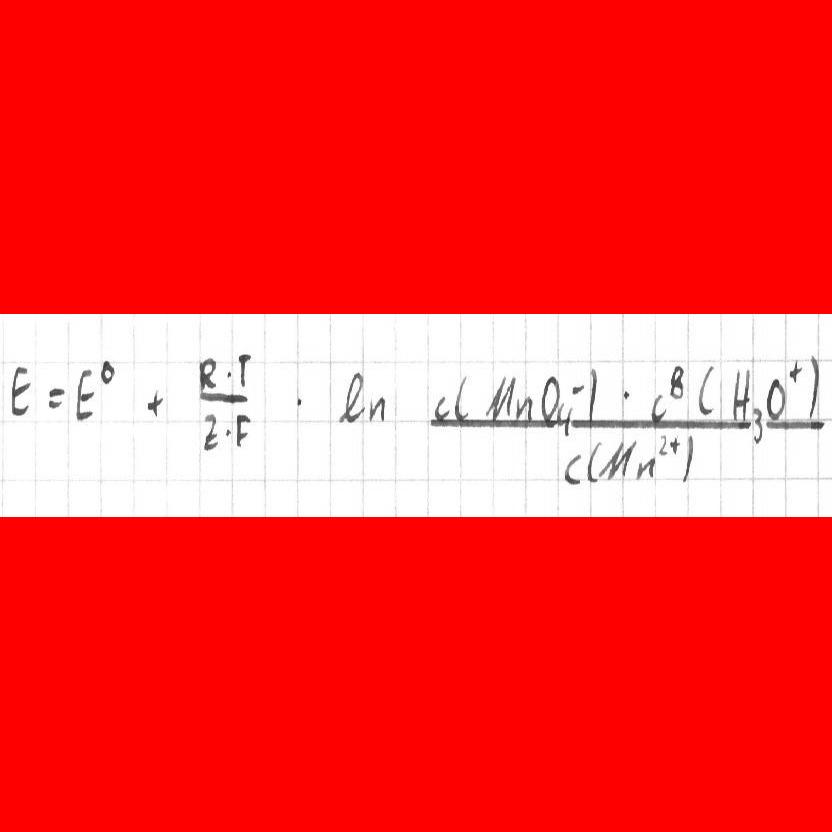 E = E⁰ + R·T / z·F · ln c(MnO₄⁻) · c⁸(H₃O⁺) / c(Mn²⁺)